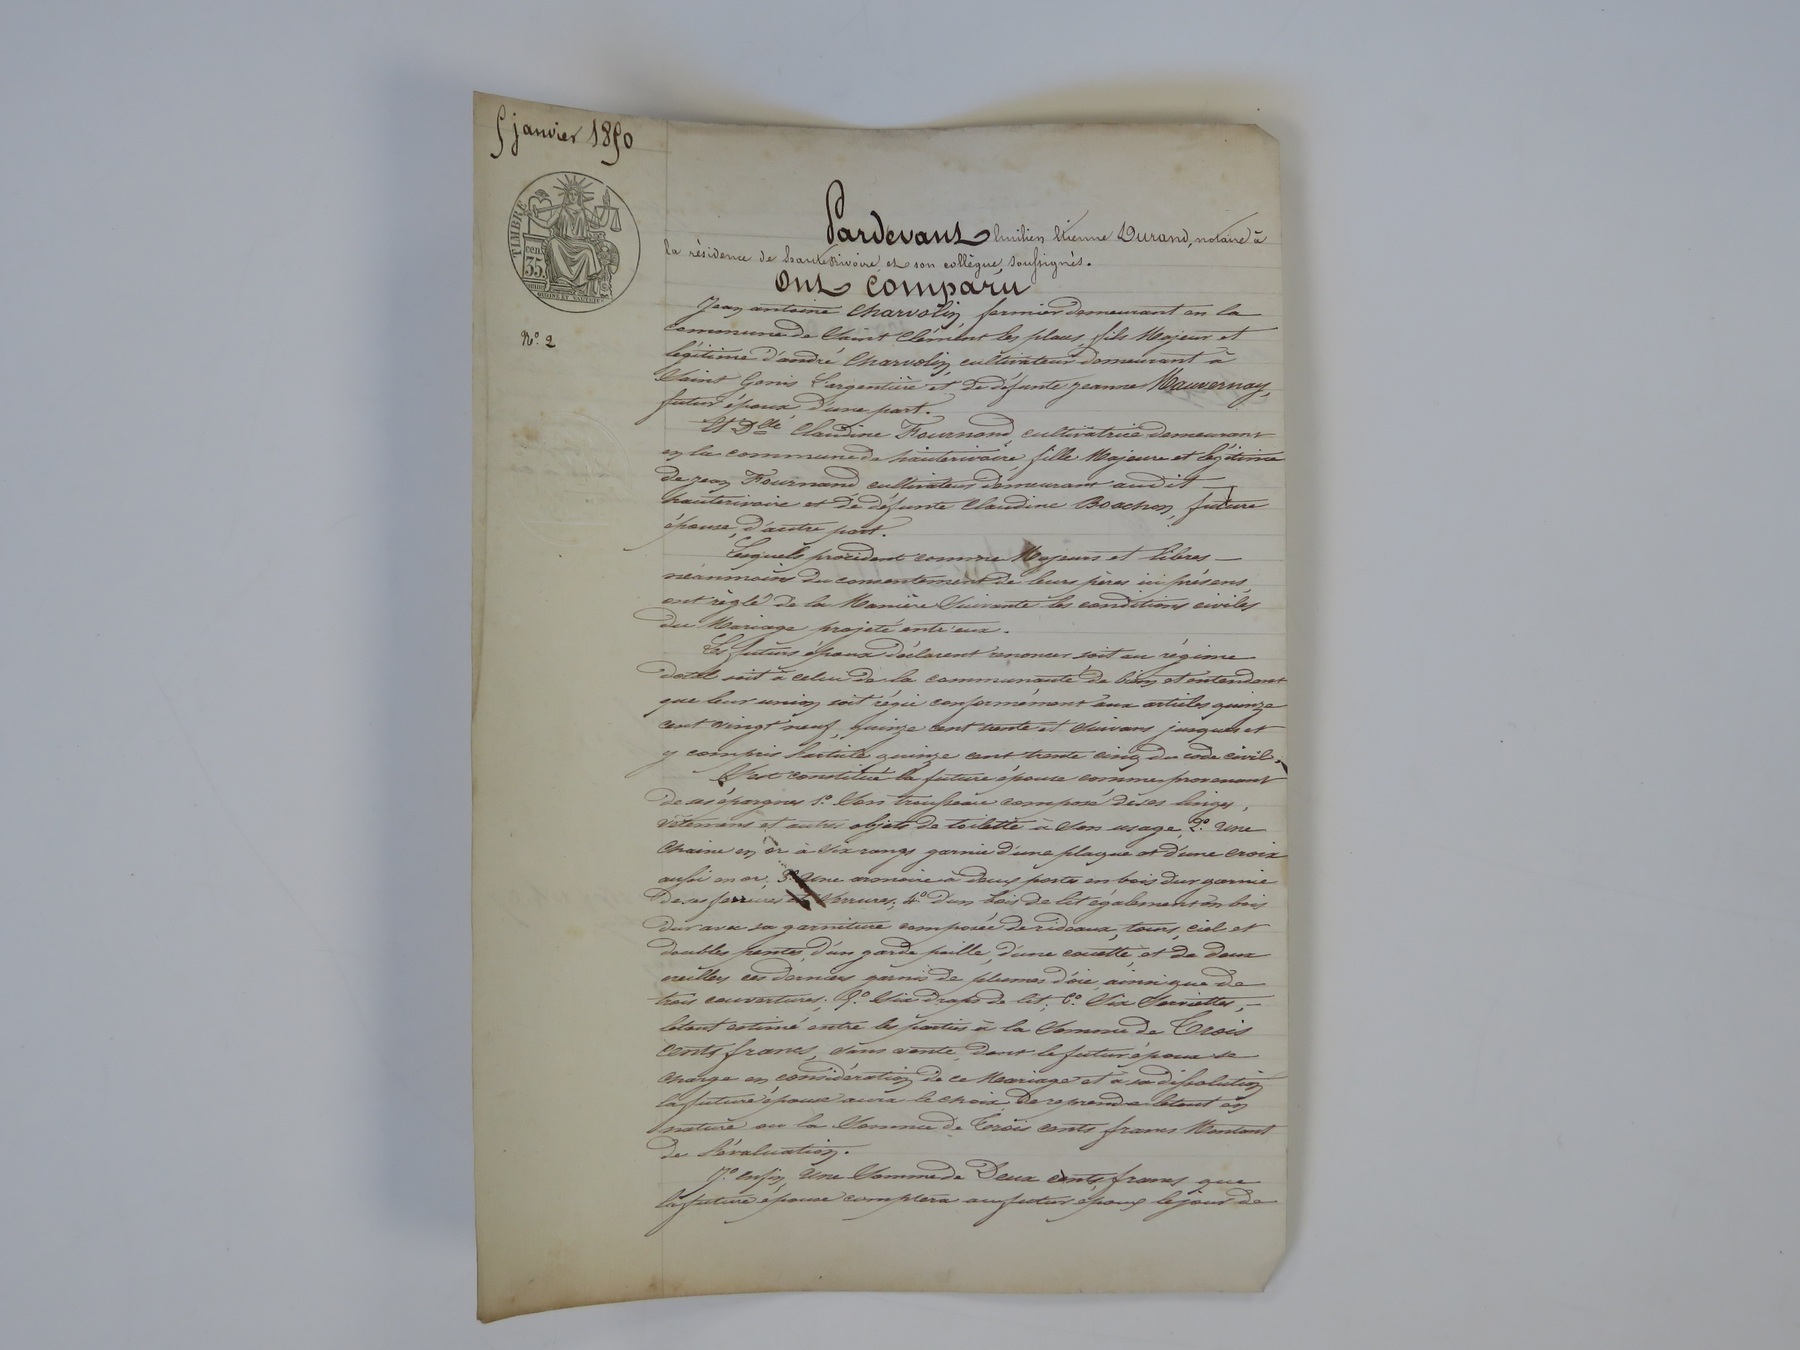 5 janvier 1850
TIMBRE
cent
35
N.º 2
Pardevant Emilien Etienne Durand, notaire à
la résidence de hauterivoire, et son collègue, soussignés.
Ont comparu
Jean antoine Charvolin, fermier demeurant en la
commune de Saint Clément les places, fils Majeur et
légitime d'andré Charvolin, cultivateur demeurant à
Saint Genis L'argentière et de défunte jeanne Mauvernay,
futur époux d'une part.
Et Dlle Claudine Fournand, cultivatrice demeurant
en la commune de hauterivoire, fille Majeure et légitime
de jean Fournand cultivateur demeurant audit
hauterivoire et de défunte Claudine Boachon, future
épouse, d'autre part.
Lesquels procédant comme Majeurs et libres
néanmoins du consentement de leurs pères ici présens,
ont règlé de la Manière Suivante les conditions civiles
du Mariage projeté entr'eux.
Les futurs époux déclarent renoncer soit au régime
dotal soit à celui de la communauté de biens et entendent
que leur union soit régie conformément aux articles quinze
cent vingt neuf, quinze cent trente et Suivans jusques et
y compris l'article quinze cent trente cinq du code civil.
S'est constitué la future épouse comme provenant
de ses épargnes 1.º Son trousseau composé de ses linges,
vêtemens et autres objets de toilette à Son usage, 2.º Une
Chaine en or à Six rangs garnie d'une plaque et d'une croix
aussi en or, 3.º Une armoire à deux portes en bois dur garnie
de ses ferrures et Serrures, 4.º d'un bois de lit également en bois
dur avec sa garniture composée de rideaux, tours, ciel et
doubles pentes, d'un garde paille, d'une couette, et de deux
oreillers ces derniers garnis de plumes d'oie, ainsi que de
trois couvertures. 5.º Six draps de lit, 6.º Six Serviettes,
letout estimé entre les parties à la Somme de Trois
cents francs, Sans vente, dont le futur époux se
charge en considération de ce Mariage et à sa dissolution
la future épouse aura le choix de reprendre letout en
nature ou la Somme de Trois cents francs Montant
de l'évaluation.
7.º enfin, Une Somme de Deux cents francs que
la future épouse comptera au futur époux le jour de